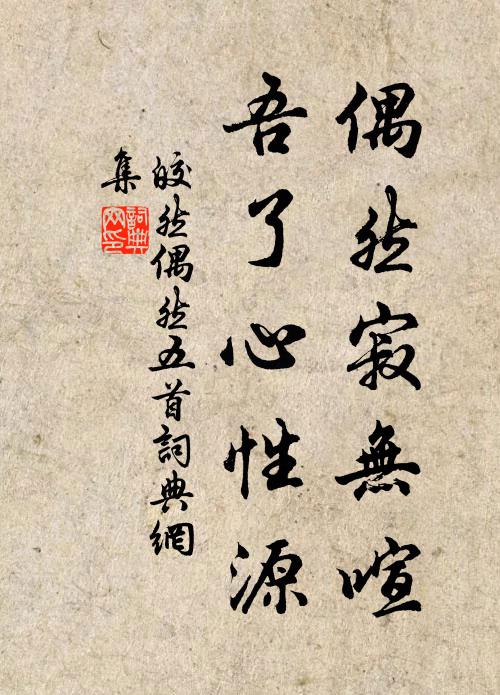 偶然寂無喧
吾了心性源
皎然偶然五首詞典網
集
詞典网印